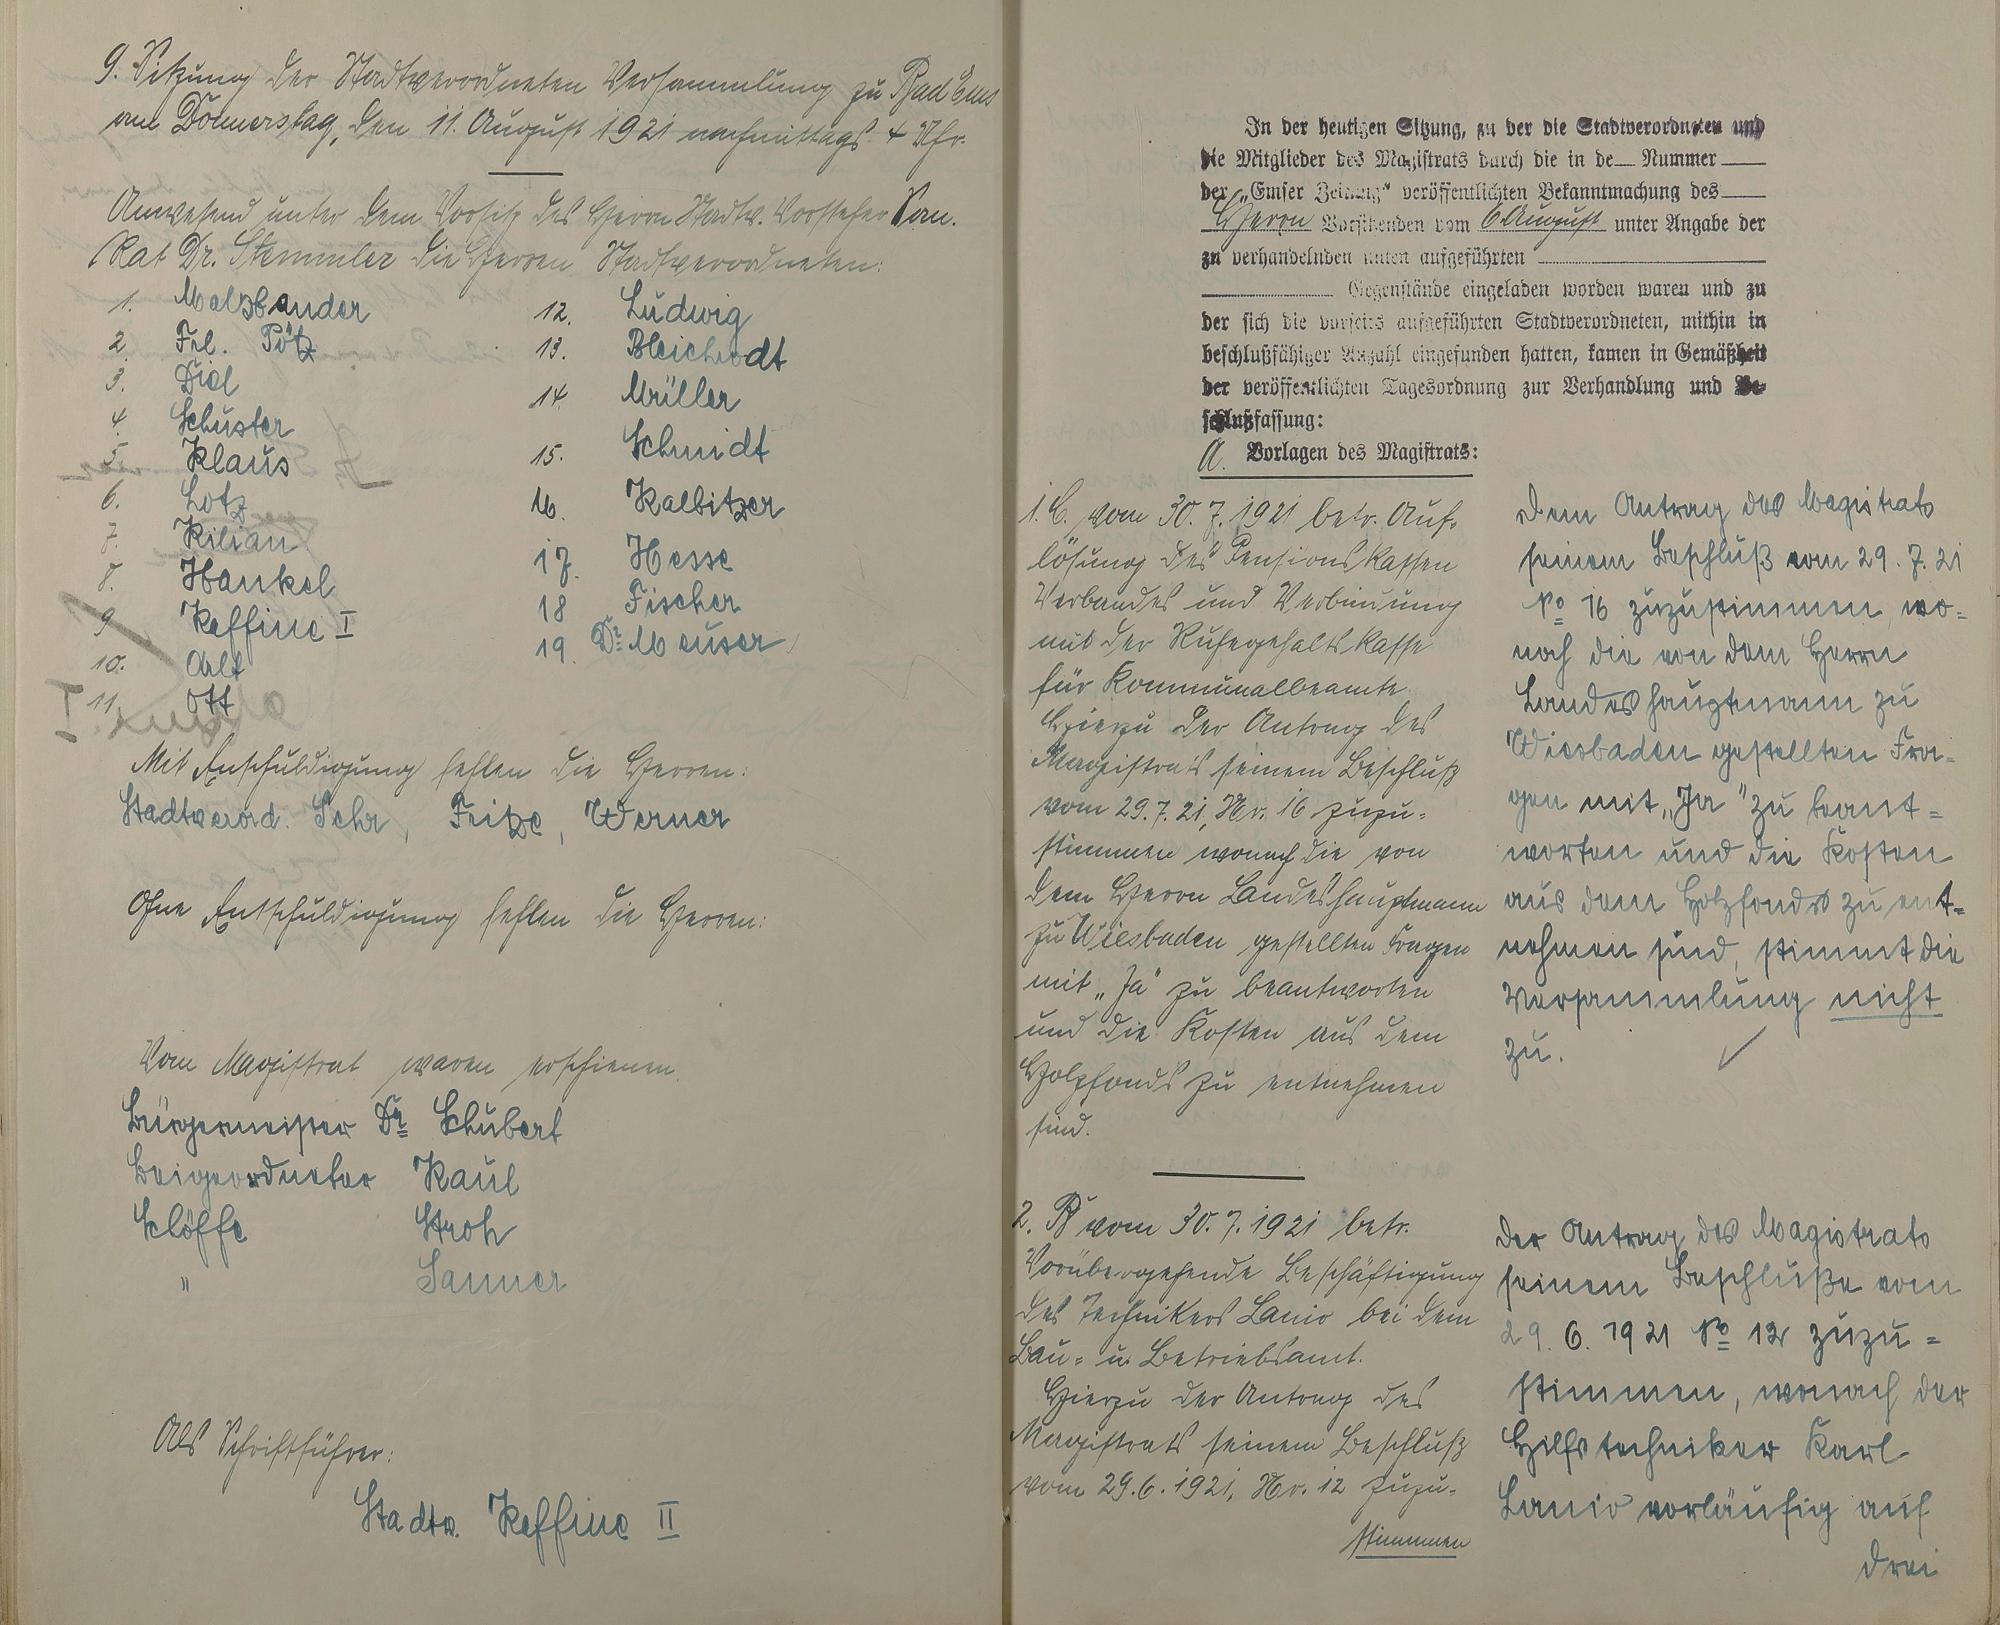 9. Sitzung der Stadtverordneten Versammlung zu Bad Ems
am Donnerstag, den 11. August 1921 nachmittags 4 Uhr.
Anwesend unter dem Vorsitz des Herrn Stadtv. Vorsteher San.
Rat Dr. Stemmler die Herren Stadtverordneten:
1. Malzbender
2. Frl. Pötz
3. Diel
4. Schuster
5. Klaus
6. Lotz
7. Kilian
8. Hankel
9. Reffine I
10. Alt
11. Ott
12. Ludwig
13. Bleichrodt
14. Müller
15. Schmidt
16. Kalbitzer
17. Hesse
18 Fischer
19. Dr. Meuser
Mit Entschuldigung fehlen die Herren:
Stadtverord. Sehr, Fritze, Werner
Ohne Entschuldigung fehlen die Herren:
Vom Magistrat waren erschienen.
Bürgermeister Dr. Schubert
Beigeordneter Kaul
Schöffe Stroh
" Sanner
Als Schriftführer:
Stadtv. Reffine II
In der heutigen Sitzung, zu der die Stadtverordneten und
die Mitglieder des Magistrats durch die in de Nummer
der „Emser Zeitung“ veröffentlichten Bekanntmachung des
Herrn Vorsitzenden vom 6 August unter Angabe der
zu verhandelnden unten aufgeführten
Gegenstände eingeladen worden waren und zu
der sich die vorseits aufgeführten Stadtverordneten, mithin in
beschlußfähiger Anzahl eingefunden hatten, kamen in Gemäßheit
der veröffentlichten Tagesordnung zur Verhandlung und Be-
schlußfassung:
A. Vorlagen des Magistrats:
1. C. vom 30.7.1921 betr. Auf-
lösung des Pensionskassen
Verbandes und Verbindung
mit der Ruhegehaltskasse
für Kommunalbeamte.
Hierzu der Antrag des
Magistrats seinem Beschluß
vom 29.7.21, Nr. 16 zuzu-
stimmen wonach die von
dem Herrn Landeshauptmann
zu Wiesbaden gestellten Fragen
mit „Ja" zu beantworten
und die Kosten aus dem
Holzfonds zu entnehmen
sind.
Dem Antrag des Magistrats
seinem Beschluß vom 29.7.21
No 16 zuzustimmen, wo-
nach die von dem Herrn
Landeshauptmann zu
Wiesbaden gestellten Fra-
gen mit „Ja" zu beant-
worten und die Kosten
aus dem Holzfonds zu ent-
nehmen sind, stimmt die
Versammlung nicht
zu.
2. B vom 30.7.1921 betr.
Vorübergehende Beschäftigung
des Technikers Lanio bei dem
Bau- u. Betriebsamt.
Hierzu der Antrag des
Magistrats seinem Beschluß
vom 29.6.1921, Nr. 12 zuzu-
stimmen
Der Antrag des Magistrats
seinem Beschluße vom
29.6.1921 No 12 zuzu-
stimmen, wonach der
Hilfstechniker Karl
Lanio vorläufig auf
drei